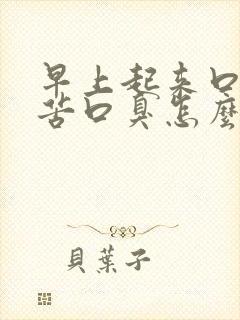 早上起来口
苦口臭怎麼
貝葉子